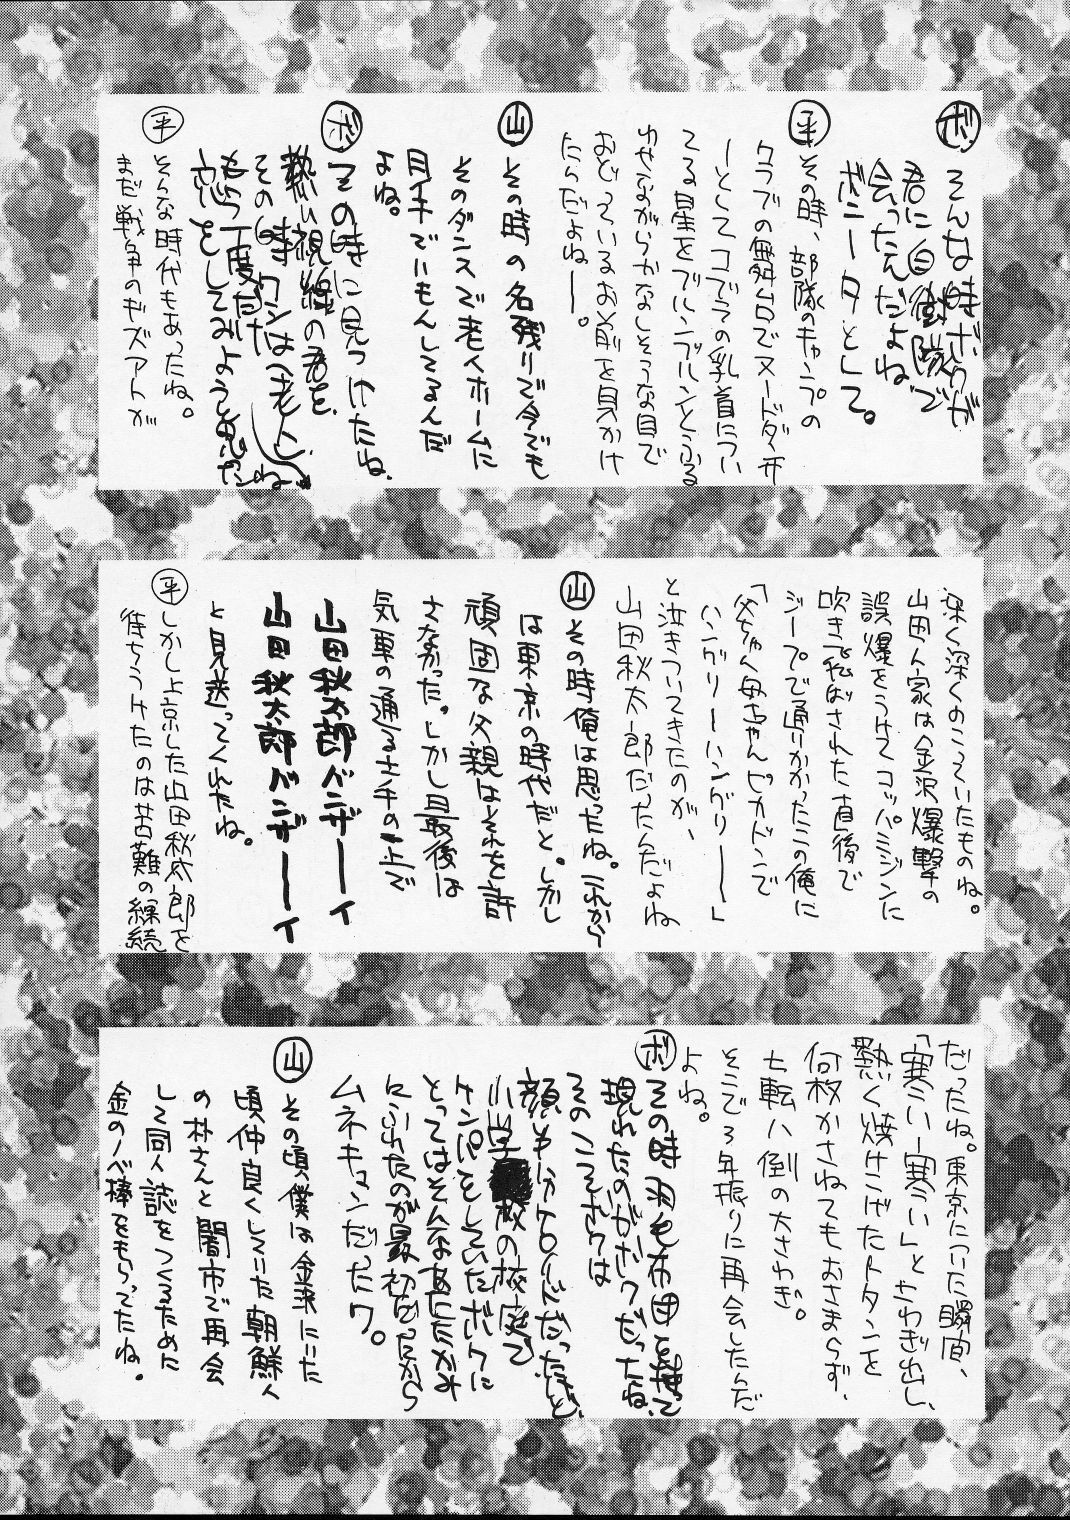 ボ そんな時ボクが
君に白衛隊で
会ったんだよね
ボニータとして。
平 その時、部隊のキャンプの
クラブの舞台でヌードダンサ
ーとしてコブラの乳首につい
てる星をブルンブルンとふる
わせながらかなしそうな目で
おどっているお前を見かけ
たんだよねー。
山 その時の名残りで今でも
そのダンスで老人ホームに
目手でいもんしてるんだ
よね。
ボ その時に見つけたね、
熱い視線の君を、
その時ワシは
もう一度だけ
恋をしてみようと思った
平 そんな時代もあったね。
まだ戦争のキズアトが
深く深くのこっていたものね。
山田ん家は金沢爆撃の
誤爆をうけてコッパミジンに
吹きで飛ばされた直後で
ジープで通りかかったこの俺に
「父ちゃん母ちゃんピカドンで
ハングリーハングリー―」
と泣きついてきたのが、
山田秋太郎だったんだよね
山 その時俺は思ったね。これから
は東京の時代だと。しかし
頑固な父親はそれを許
さなかった。しかし最後は
気車の通る土手の上で
山田秋太郎バンザーイ
山田秋太郎バンザーイ
と見送ってくれたね。
平 しかし上京した山田秋太郎を
待ちうけたのは苦難の継続
だったね。東京についた瞬間、
「寒いー寒い」とさわぎ出し、
熱く焼けこげたトタンを
何枚かさねてもおさまらず、
七転八倒の大さわぎ。
そこで3年振りに再会したんだ
よね。
ボ その時羽毛布団を持って
現れたのがボクだったね、
そのころボクは
顔もハカロイドだったけど、
小学校の校庭で
ケンパをしていたボクに
とってはそんなあたたかみ
にふれたのが最初だったから
ムネキュンだったワ。
山 その頃、僕は金沢にいた
頃仲良くしていた朝鮮人
の朴さんと闇市で再会
して同人誌をつくるために
金のノベ棒をもらってたね。